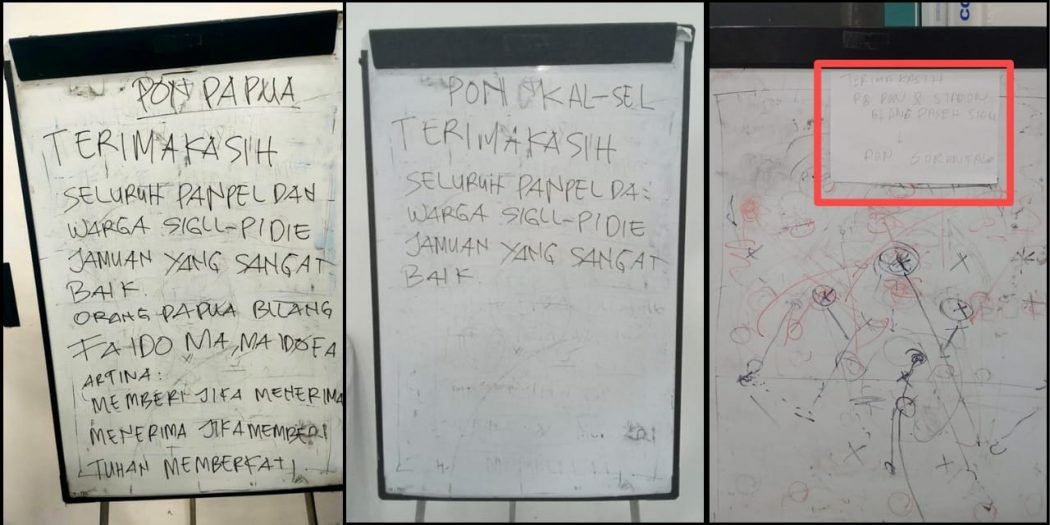 PON PAPUA
TERIMAKASIH
SELURUH PANPEL DAN
WARGA SIGLI-PIDIE
JAMUAN YANG SANGAT
BAIK.
ORANG PAPUA BILANG
FAIDO MA, MA IDOFA
ARTINA:
MEMBERI JIKA MENERIMA
MENERIMA JIKA MEMBERI
TUHAN MEMBERKATI
PON KAL-SEL
TERIMAKASIH
SELURUH PANPEL DA
WARGA SIGLI-PIDIE
JAMUAN YANG SANGAT
BAIK.
TERIMAKASIH
PB PON & STADON
BLANG PASEH SIGLI
↓
PON GORONTALO